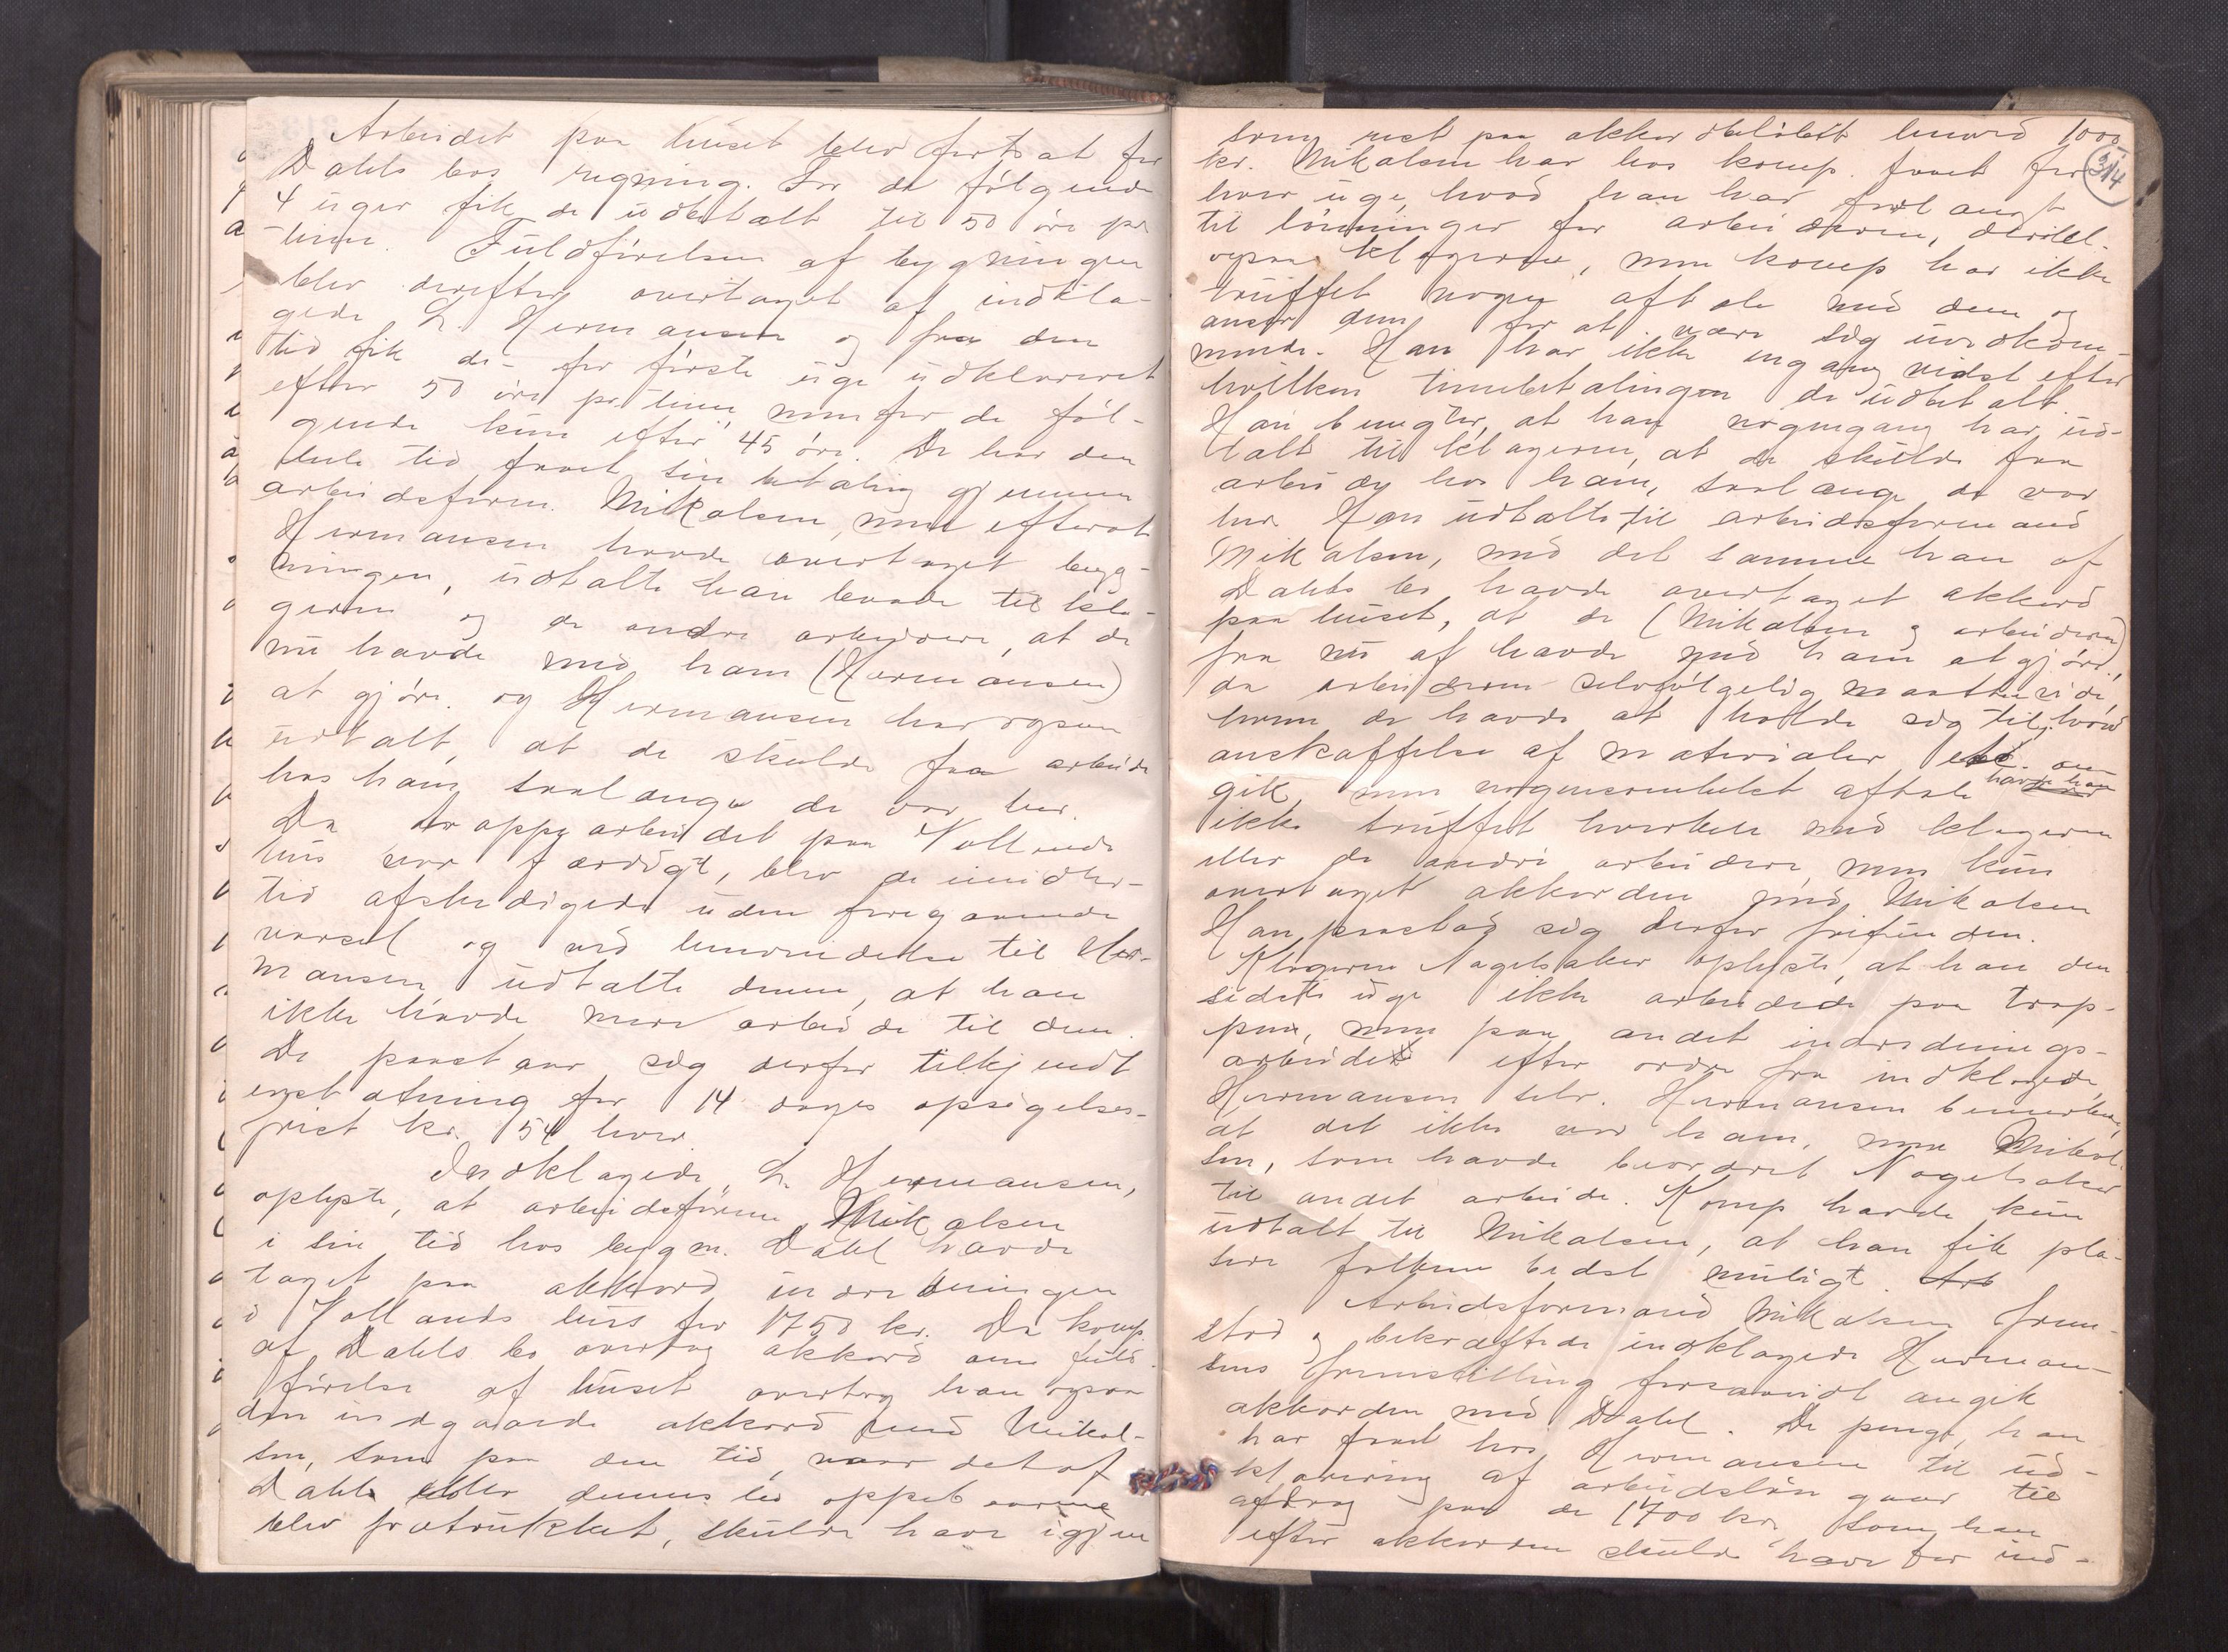 Arbeidet paa huset blev fortsat for
Dahls bos regning. For de følgende
4 uger fik de udbetalt til 50 øre pr.
time. Fuldførelsen af bygningen
blev derefter overtaget af indkla-
gede L. Hermansen og fra den
tid fik de for første uge udklareret
efter 50 øre pr. time, men for de føl-
gende kun efter 45 øre. De har den
hele tid faaet sin betaling gjennem
arbeidsform. Mikalsen, men efterat
Hermansen havde overtaget byg-
ningen, udtalte han baade til kla-
gerne og de andre arbeidere, at de
nu havde med ham (Hermansen)
at gjøre og Hermansen har ogsaa
udtalt, at de skulde faa arbeide
hos ham saalænge de var her.
Da trappearbeidet paa Vollands
hus var færdigt, blev de imidler-
tid afskediget uden foregaaende
varsel og ved henvendelse til Her-
mansen udtalte denne, at han
ikke havde mere arbeide til dem.
De paastaar sig derfor tilkjendt
erstatning for 14 dages opsigelses-
frist kr. 54 hver.
Indklagede, L. Hermansen,
oplyste, at arbeidsform. Mikalsen
i sin tid hos bygm. Dahl havde
taget paa akkord indredningen
i Vollands hus for 1750 kr. Da komp.
af Dahls bo overtog akkord om fuld-
førelse af huset overtog han ogsaa
den indgaaede akkord med Mikal-
sen, som paa den tid, naar det af
Dahl eller dennes bo oppebaarne
blev fratrukket, skulde have igjen
som rest paa akkordbeløbet henved 1000
314
kr. Mikalsen har hos komp. faaet for
hver uge, hvad han har forlangt
til lønninger for arbeiderne, deribl.
ogsaa klagerne, men komp har ikke
truffet nogen aftale med dem og
anser dem for at være sig uvedkom-
mende. Han har ikke engang vidst efter
hvilken timebetalingen de udbetalt.
Han benegter, at han nogengang har ud-
talt til klagerne, at de skulde faa
arbeide hos ham, saalænge de var
her. Han udtalte til arbeidsformand
Mikalsen, med det samme han af
Dahls bo havde overtaget akkord
paa huset, at de (Mikalsen og arbeiderne)
fra nu af havde med ham at gjøre,
da arbeiderne selvfølgelig maatte vide
hvem de havde at holde sig til, hvad
anskaffelse af materialer etc. an-
gik, men nogensomhelst aftale har han
ikke truffet hverken med klagerne
eller de andre arbeidere, men kun
overtaget akkorden med Mikalsen
Han paastod sig derfor frifunden.
Klageren Nagelsaker oplyste, at han den
sidste uge ikke arbeidede paa trap-
pen, men paa andet indrednings-
arbeide efter ordre fra indklagede
Hermansen selv. Hermansen bemerkede,
at det ikke var ham, men Mikal-
sen, som havde beordret Nagelsaker
til andet arbeide. Komp havde kun
udtalt til Mikalsen, at han fik pla-
sere folkene bedst muligt. Arb
Arbeidsformand Mikalsen frem-
stod og bekræftede indklagede Herman-
sens fremstilling forsaavidt angik
akkorden med Dahl. De penge, han
har faaet hos Hermansen til ud-
klarering af arbeidsløn gaar til
afdrag paa de 1700 kr., som han
efter akkorden skulde have for ind-